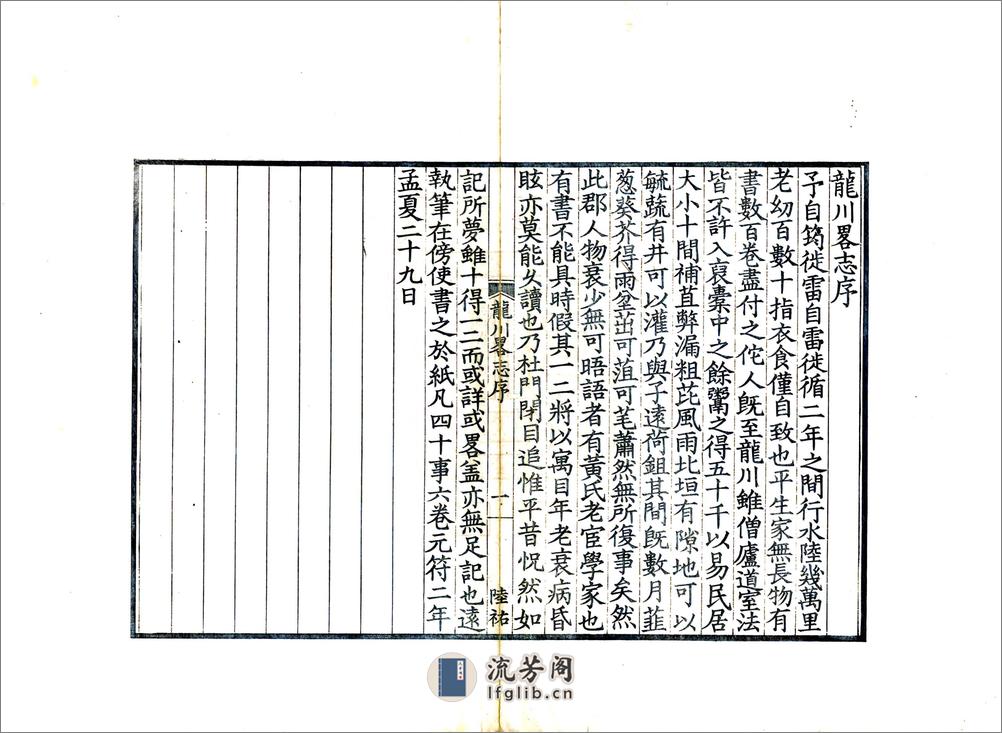 龍川畧志序
予自筠徙雷自雷徙循二年之間行水陸幾萬里
老幼百數十指衣食僅自致也平生家無長物有
書數百卷盡付之佗人旣至龍川雖僧廬道室法
皆不許入裒橐中之餘鬻之得五十千以易民居
大小十間補苴弊漏粗芘風雨北垣有隙地可以
毓蔬有井可以灌乃與子遠荷鉏其間旣數月韮
葱葵芥得雨坌茁可葅可芼蕭然無所復事矣然
此郡人物衰少無可晤語者有黃氏老宦學家也
有書不能具時假其一二將以寓目年老衰病昏
眩亦莫能久讀也乃杜門閉目追惟平昔怳然如
龍川畧志序
一
陸祐
記所夢雖十得一二而或詳或畧盖亦無足記也遠
執筆在傍使書之於紙凡四十事六卷元符二年
孟夏二十九日
流芳阁
lfglib.cn